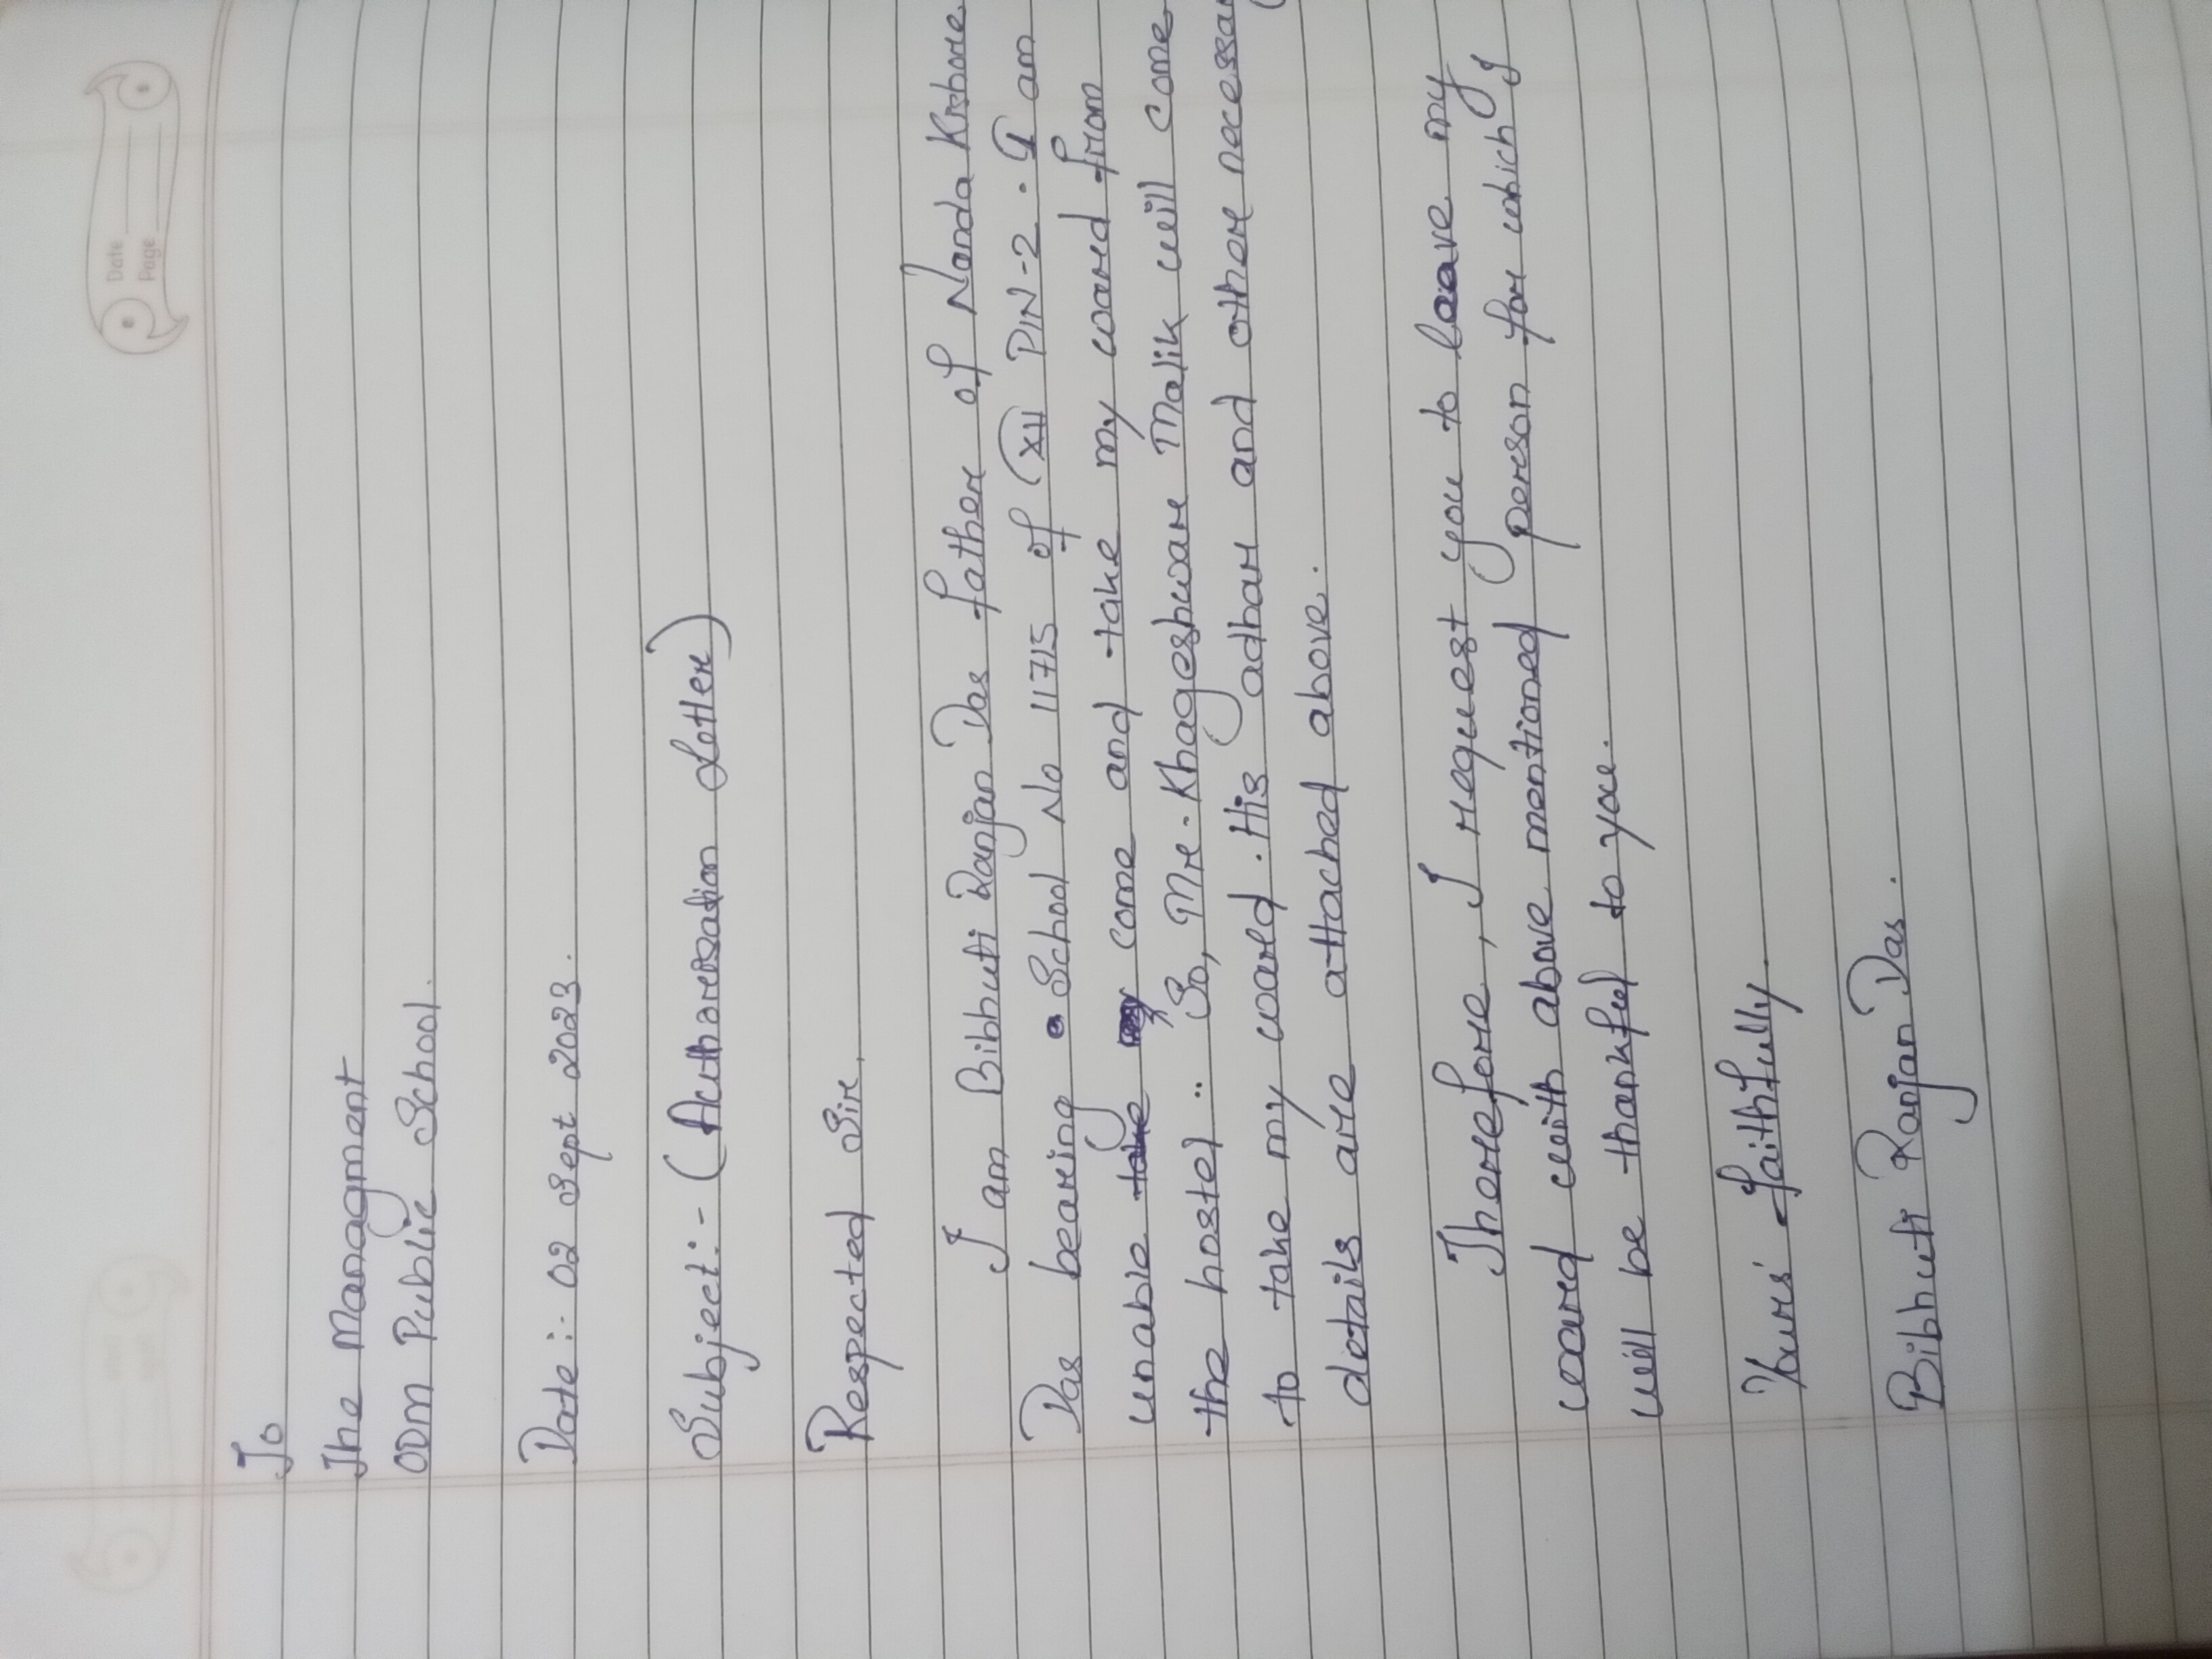 Date
Page
To
The Managment
ODM Public School.
Date :- 02 Sept 2023.
Subject :- (Authoresation Letter)
Respected Sir,
I am Bibhuti Ranjan Das father of Nanda Kishore
Das bearing School No 11715 of (XII PIN-2. I am
unable come and take my ward from
the hostel .. So, Mr. Khageshwar Malik will come
to take my ward. His adhar and other necessar
details are attached above.
Therefore, I request you to leave my
ward with above mentioned person for which I
will be thankful to you.
Yours' faithfully
Bibhuti Ranjan Das.